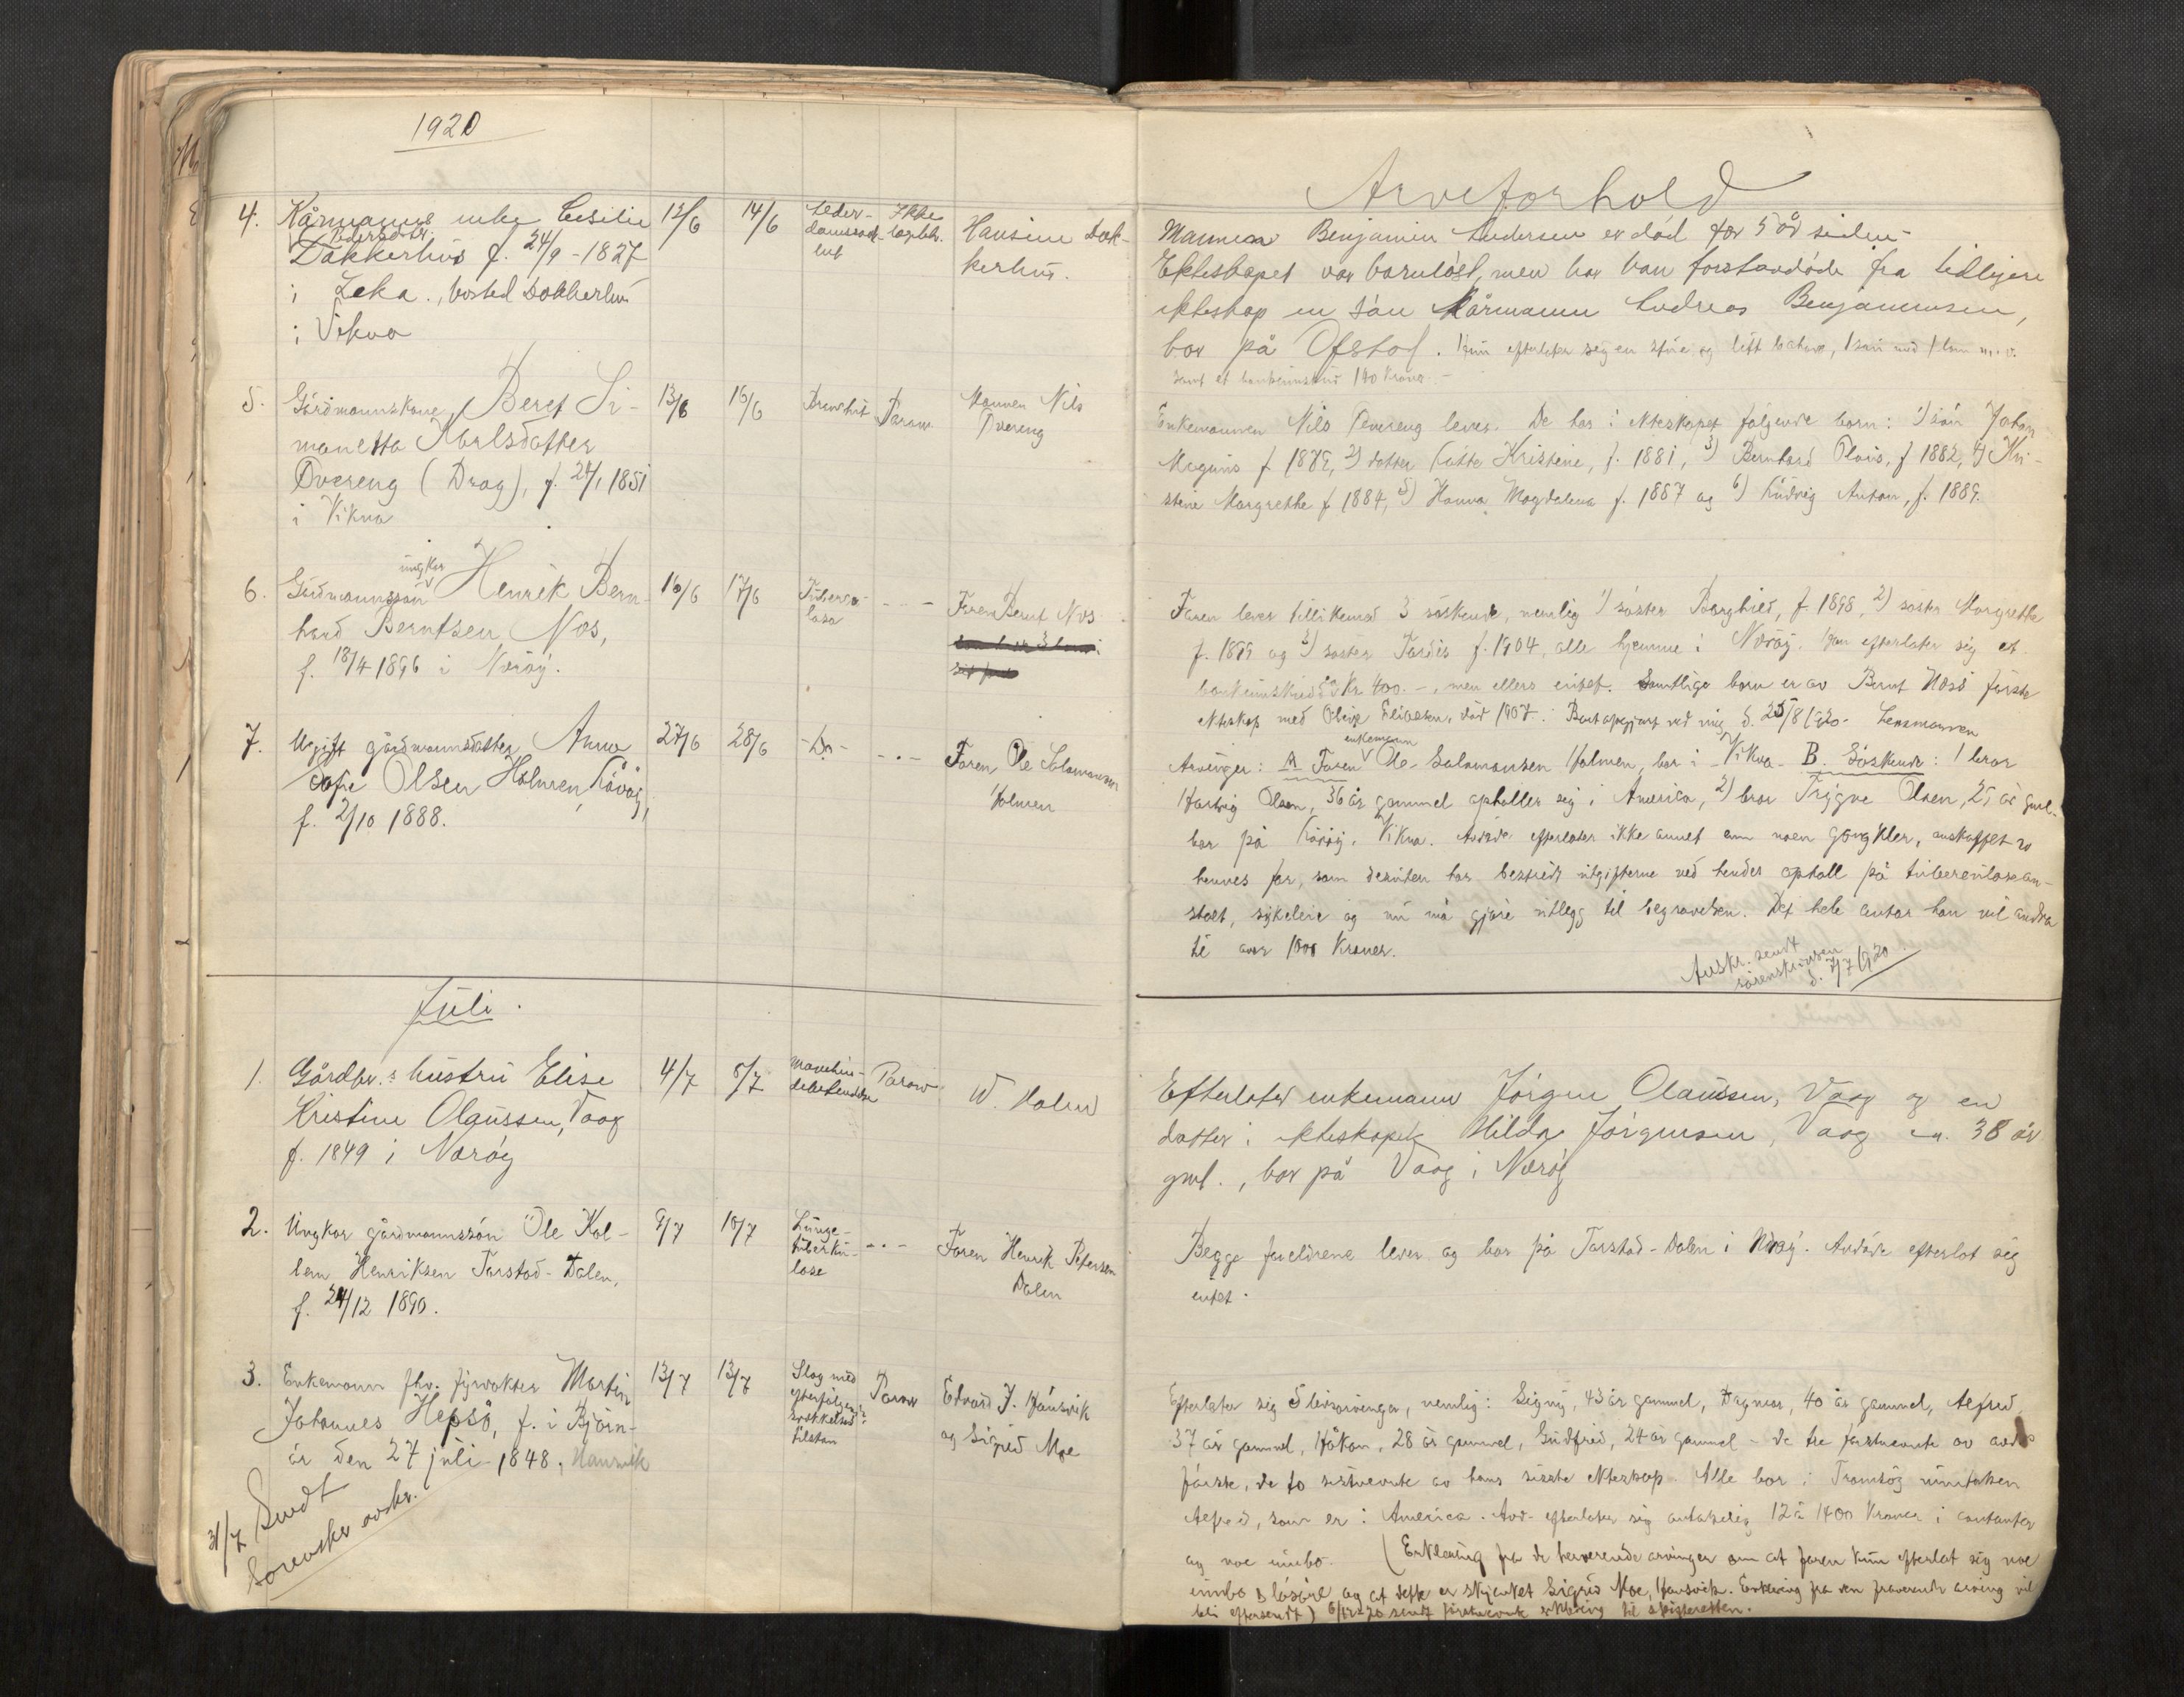 1920
4. Kårmanns enke Cesilie 12/6 14/6 Alder- Ikke Hansine Dok-
Pedersdtr. domssvak- lægebh. kerhus.
Dakkerhus f. 24/9 - 1827 het
i Leka., bosted Dokkerhus
i Vikna
5. Gårdmannskone Beret Si- 13/6 16/6 Parow Mannen Nils
manetta Karlsdatter Øvereng
Øvereng (Drag), f. 24/1 1851
i Vikna
6. Gårdmannssøn ungkar Henrik Bern- 16/6 17/6 Tuberku- - " - Faren Bernt Nøs
hard Berntsen Nøs, lose
f. 18/4 1896 i Nærøy.
7. Ugift gårdmannsdatter Anna 27/6 28/6 - Do - - " - Faren Ole Salamonsen
Sofie Olsen Holmen, Råvåg, Holmen
f. 2/10 1888.
Juli.
1. Gårdbr.s hustru Elise 4/7 5/7 Parow W. Holm
Kristine Olaussen, Vaag
f. 1849 i Nærøy
2. Ungkar gårdmannssøn Ole Kol- 9/7 10/7 Lunge- - " - Faren Henrik Petersen
bern Henriksen Tarstad-Dalen, tuberku- Dalen
f. 24/12 1890. lose
3. Enkemann fhv. fyrvokter Martin 13/7 13/7 Slag med Parow Edvard J. Hansvik
Johannes Hepsø, f. i Bjørn- efterfølgende og Sigrid Moe
ør den 27 juli 1848, Hansvik svakkelses
tilstan
31/7 Sendt
Sorenskr avskr.
Arveforhold
Mannen Benjamin Andersen er død for 5 år siden -
Ekteskapet var barnløst, men har han forstandøde fra tidligere
ekteskap en søn Kårmann Andreas Benjaminsen,
bor på Ofstad. Hun efterlater seg en stue og litt
samt et bankinnskud 140 kroner. -
Enkemannen Nils Øvereng lever. De har i ekteskapet følgende barn: 1) søn Johan
Magnus f 1879, 2) datter Kristine, f. 1881, 3) Bernhard Olais, f 1882, 4) Kri-
stine Margrethe f 1884, 5) Hanna Magdalena f. 1887 og 6) Ludvig Anton, f. 1889.
Faren lever tillikemed 3 søskende, nemlig 1) søster Borghild, f 1898, 2) søster Margrethe
f. 1899 og 3) søster Tordis f. 1904, alle hjemme i Nærøy. Han efterlater sig et
bankinnskudd kr. 400.-, men ellers intet. Samtlige barn er av Bernt Nøss første
ekteskap med Oline Eliasen, død 1907. Bortopgjort ved mig d. 25/8 1920 - Lensmannen
Arvinger: A Faren enkemann Ole Salamonsen Holmen, bor i Vikna - B. Søskende: 1 bror
Hartvig Olsen, 36 år gammel opholler seg i America, 2) bror Trygve Olsen, 25 år gml.
bor på Råvåg, Vikna. Avdøde efterlater ikke annet enn noen gangklær, anskaffet av
hennes far, som desuten har bestridt utgifterne ved hendes ophall på tuberculosean-
stalt, sykeleie og nu må gjøre utlegg til begravelsen. Det hele antar han vil andra
til over 1000 Kroner.
Avskr. sendt
sorenskriveren
d. 7/7 1920
Efterlater enkemann Jørgen Olaussen, Vaag og en
datter i ekteskapet Hilda Jørgensen, Vaag ca. 38 år
gml., bor på Vaag i Nærøy
Begge foreldrene lever og bor på Tarstad-Dalen i Nærøy. Avdøde efterlot sig
intet.
Efterlater sig 5 livsarvinger, nemlig: Signy, 43 år gammel, Dagmar, 40 år gammel, Alfred,
37 år gammel, Håkon, 28 år gammel, Gudfred, 24 år gammel - de tre førstnevnte av avdø
første, de to sistnevnte av hans siste ekteskap. Alle bor i Tromsøy unntaken
Alfred, som er i America. Avd. efterlater sig antakelig 12 à 1400 Kroner i contanter
og noe innbo. (Erklæring fra de herværende arvinger om at faren kun efterlot sig noe
innbo & løsøre og at dette er skjenket Sigrid Moe, Hansvik. Erklæring fra den fraværende arving vil
bli eftersendt) 6/12-20 sendt førstnevnte erklæring til skifteretten.